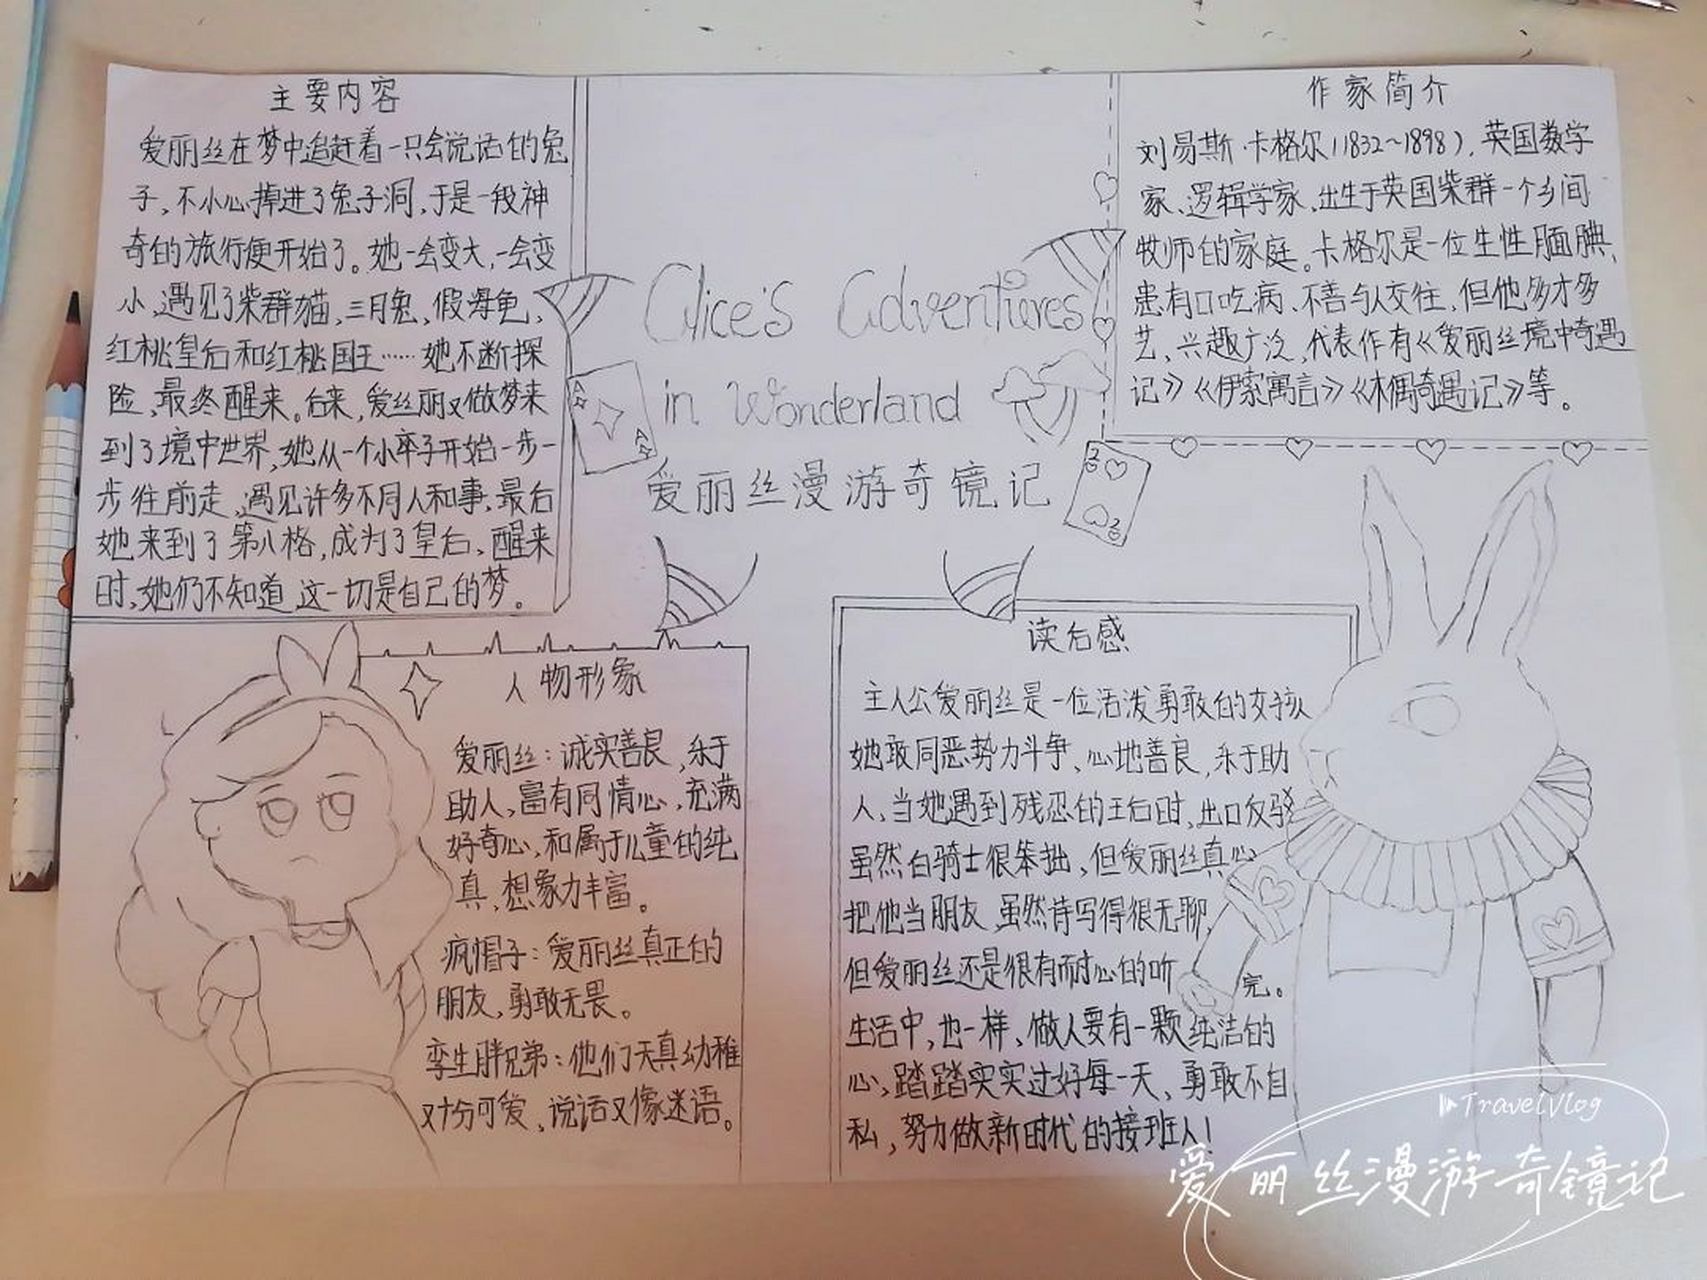 主要内容
爱丽丝在梦中追赶着一只会说话的兔
子,不小心掉进了兔子洞,于是一段神
奇的旅行便开始了。她一会变大,一会变
小,遇见了柴群猫,三月兔,假海龟、
红桃皇后和红桃国王……她不断探
险,最终醒来。后来,爱丝丽又做梦来
到了境中世界,她从一个小卒子开始一步一
步往前走,遇见许多不同人和事,最后
她来到了第八格,成为了皇后,醒来
时,她仍不知道 这一切是自己的梦。
Alice's Adventures
in Wonderland
爱丽丝漫游奇镜记
A
A
2
2
作家简介
刘易斯·卡格尔(1832~1898),英国数学
家、逻辑学家,出生于英国柴群一个乡间
牧师的家庭。卡格尔是一位生性腼腆,
患有口吃病,不善与人交往,但他多才多
艺,兴趣广泛,代表作有《爱丽丝境中奇遇
记》《伊索寓言》《木偶奇遇记》等。
人物形象
爱丽丝:诚实善良,乐于
助人,富有同情心,充满
好奇心,和属于儿童的纯
真,想象力丰富。
疯帽子:爱丽丝真正的
朋友,勇敢无畏。
孪生胖兄弟:他们天真幼稚
又十分可爱,说话又像迷语。
读后感
主人公爱丽丝是一位活泼勇敢的女孩
她敢同恶势力斗争,心地善良,乐于助
人,当她遇到残忍的王后时,出口反驳
虽然白骑士很笨拙,但爱丽丝真心
把他当朋友,虽然诗写得很无聊,
但爱丽丝还是很有耐心的听 完。
生活中,也一样,做人要有一颗纯洁的
心,踏踏实实过好每一天,勇敢不自
私,努力做新时代的接班人!
TravelVlog
爱丽丝漫游奇镜记